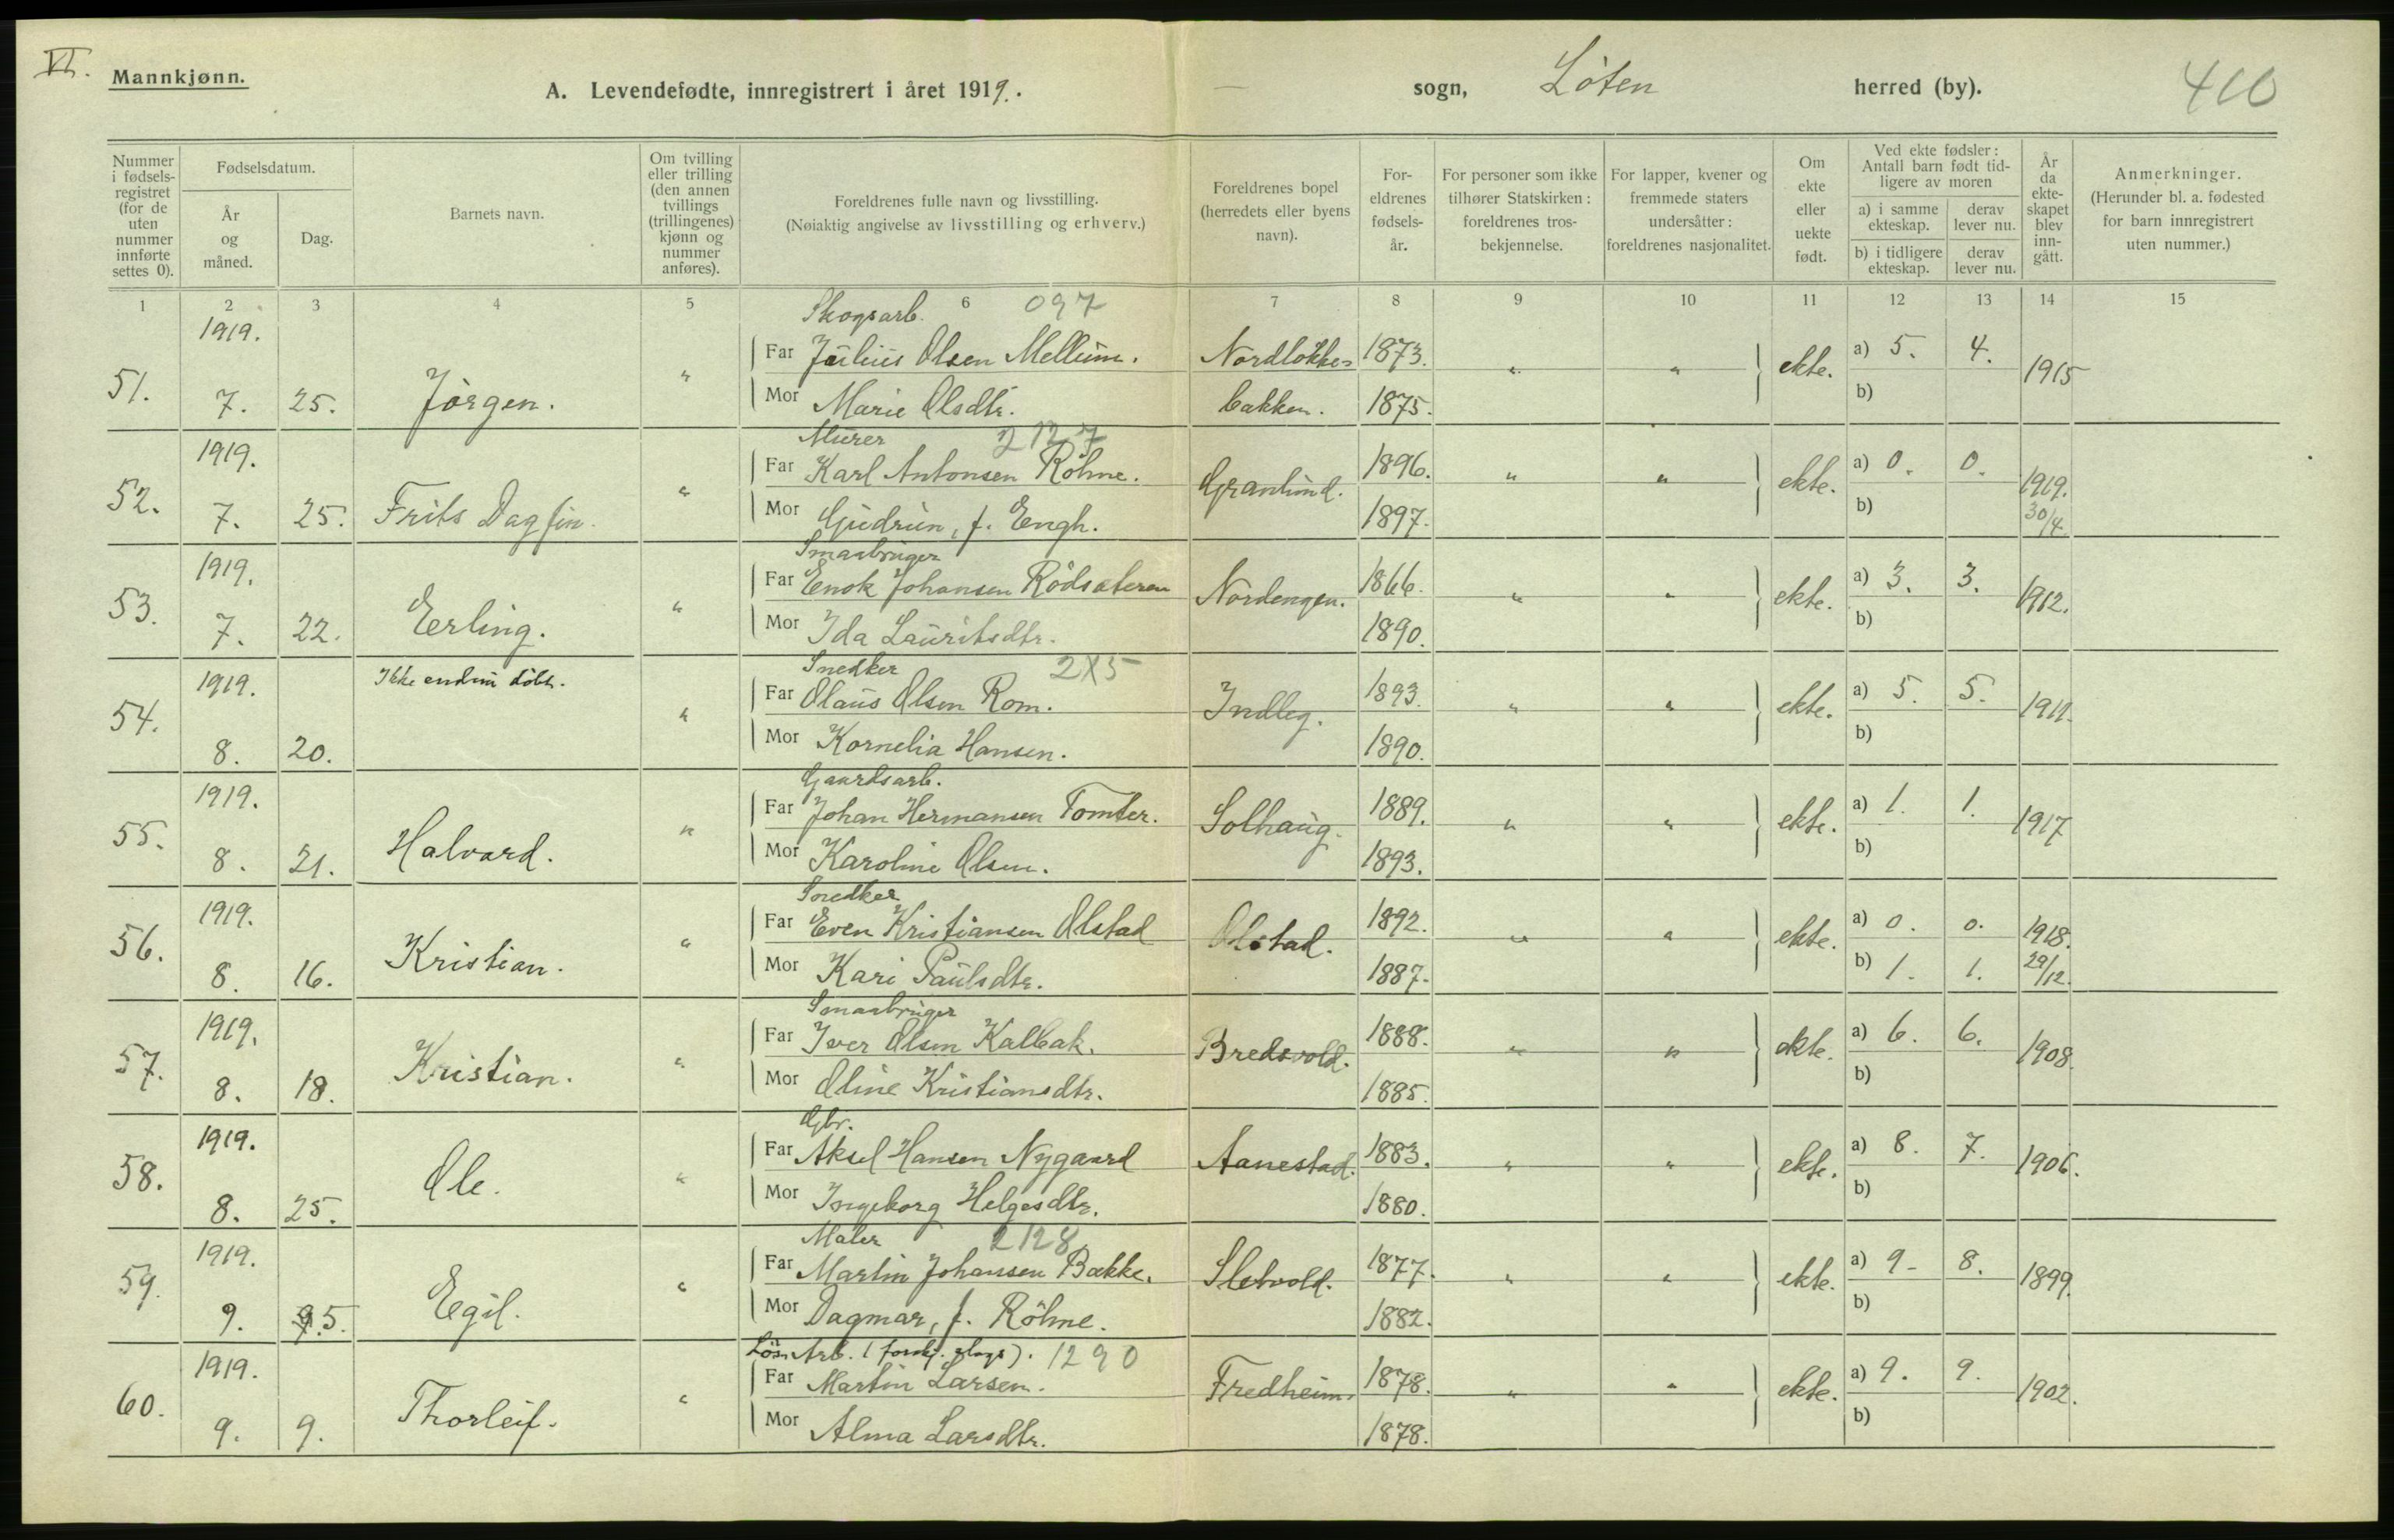 VI.
Mannkjønn.
A. Levendefødte, innregistrert i året 1919.
— sogn, Löten herred (by).
Nummer i fødsels-registret (for de uten nummer innførte settes 0).
Fødselsdatum.
År og måned.
Dag.
Barnets navn.
Om tvilling eller trilling (den annen tvillings (trillingenes) kjønn og nummer anføres).
Foreldrenes fulle navn og livsstilling.
(Nøiaktig angivelse av livsstilling og erhverv.)
Foreldrenes bopel (herredets eller byens navn).
For-eldrenes fødsels-år.
For personer som ikke tilhører Statskirken: foreldrenes tros-bekjennelse.
For lapper, kvener og fremmede staters undersåtter: foreldrenes nasjonalitet.
Om ekte eller uekte født.
Ved ekte fødsler: Antall barn født tid-ligere av moren
a) i samme ekteskap.
derav lever nu.
b) i tidligere ekteskap.
derav lever nu.
År da ekte-skapet blev inn-gått.
Anmerkninger.
(Herunder bl. a. fødested for barn innregistrert uten nummer.)
1 2 3 4 5 6 7 8 9 10 11 12 13 14 15
Skogsarb. 097
1919.
Far Julius Olsen Mellum. Nordlökke- 1873. a) 5. 4.
51. 7. 25. Jörgen. " " " ekte. 1915
Mor Marie Olsdtr. bakken. 1875. b)
Murer 2127
1919.
Far Karl Antonsen Röhne. 1896. a) 0. 0.
52. 7. 25. Frits Dagfin. " Granlund. " " ekte. 1919. 30/4
Mor Gudrun, f. Engh. 1897. b)
Smaabruger
1919.
Far Enok Johansen Rödsæteren 1866. a) 3. 3.
53. 7. 22. Erling. " Nordengen. " " ekte. 1912.
Mor Ida Lauritsdtr. 1890. b)
Snedker 2X5
1919. Ikke endnu döbt.
Far Olaus Olsen Rom. 1893. a) 5. 5.
54. 8. 20. " Indleg. " " ekte. 1911.
Mor Kornelia Hansen. 1890. b)
Gaardsarb.
1919.
Far Johan Hermansen Tomter. 1889. a) 1. 1.
55. 8. 21. Halvard. " Solhaug. " " ekte. 1917
Mor Karoline Olsen. 1893. b)
Snedker
1919.
Far Even Kristiansen Olstad 1892. a) 0. 0.
56. 8. 16. Kristian. " Olstad. " " ekte. 1918. 29/12.
Mor Kari Paulsdtr. 1887. b) 1. 1.
Smaabruger
1919.
Far Iver Olsen Kalbak. 1888. a) 6. 6.
57. 8. 18. Kristian. " Bredsvold. " " ekte. 1908.
Mor Oline Kristiansdtr. 1885. b)
Gbr.
1919.
Far Aksel Hansen Nygaard 1883. a) 8. 7.
58. 8. 25. Ole. " Aanestad. " " ekte. 1906.
Mor Ingeborg Helgesdtr. 1880. b)
Maler 2128
1919.
Far Martin Johansen Bække. 1877. a) 9- 8.
59. 9. 5. Egil. " Sletvold. " " ekte. 1899.
Mor Dagmar, f. Röhne. 1882. b)
Lös Arb. (forskj. slags). 1290
1919.
Far Martin Larsen. 1878. a) 9. 9.
60. 9. 9. Thorleif. " Fredheim. " " ekte. 1902.
Mor Alma Larsdtr. 1878. b)